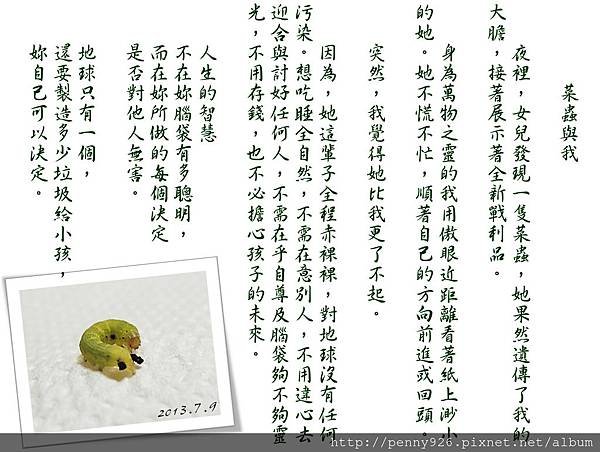 菜蟲與我
夜裡，女兒發現一隻菜蟲，她果然遺傳了我的
大膽，接著展示著全新戰利品。
身為萬物之靈的我用傲眼近距離看著紙上渺小
的她。她不慌不忙，順著自己的方向前進或回頭。
突然，我覺得她比我更了不起。
因為，她這輩子全程赤裸裸，對地球沒有任何
污染。想吃睡全自然，不需在意別人，不用違心去
迎合與討好任何人，不需在乎自尊及腦袋夠不夠靈
光，不用存錢，也不必擔心孩子的未來。
人生的智慧
不在妳腦袋有多聰明，
而在妳所做的每個決定
是否對他人無害。
地球只有一個，
還要製造多少垃圾給小孩，
妳自己可以決定。
2013.7.9
http://penny926.pixnet.net/album